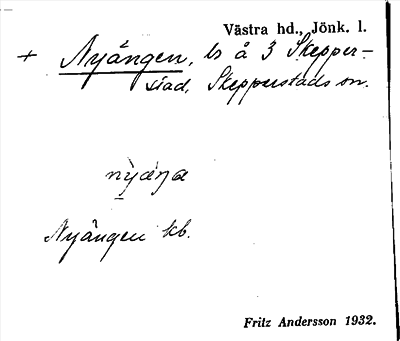 Västra hd., Jönk. l.
+ Nyängen, ls å 3 Skepper-
stad, Skepperstads sn.
Nyängen kb.
Fritz Andersson 1932.